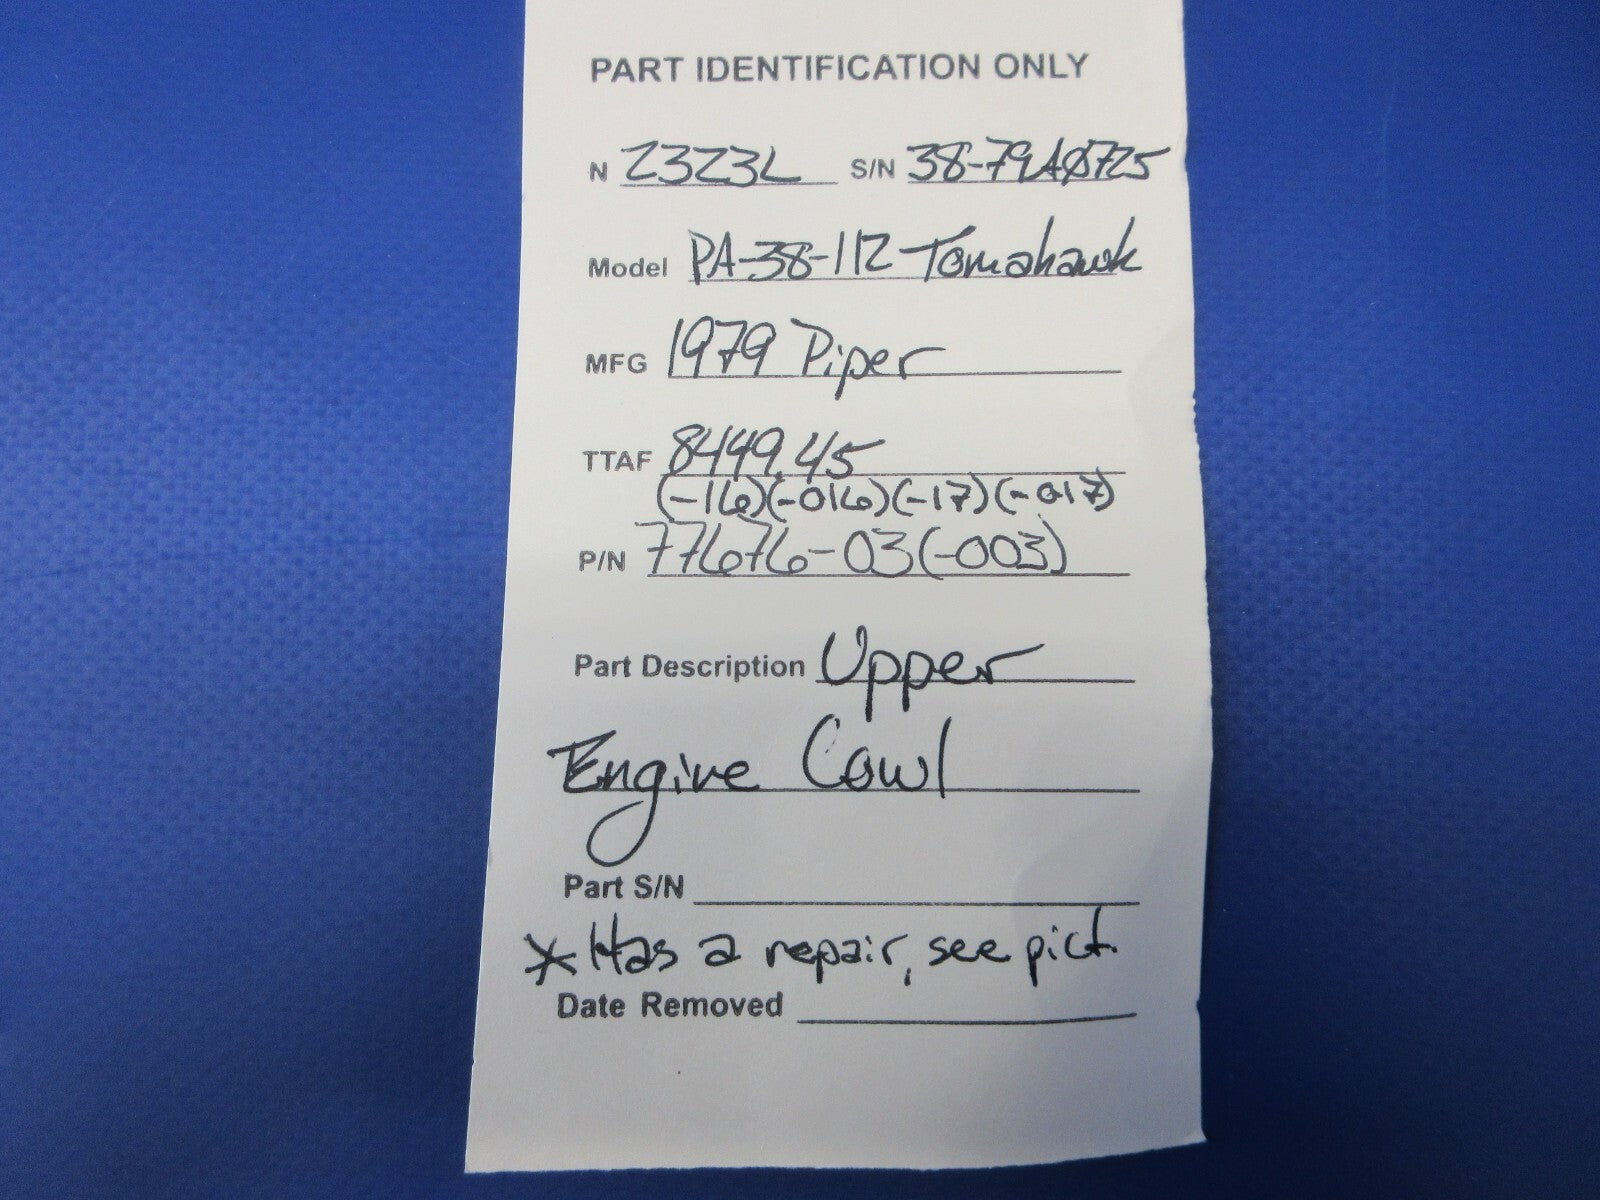 PART IDENTIFICATION ONLY
N 2323L S/N 38-79A0725
Model PA-38-112 Tomahawk
MFG 1979 Piper
TTAF 8449.45
(-16)(-016)(-17)(-017)
P/N 77676-03(-003)
Part Description Upper
Engine Cowl
Part S/N
* Has a repair, see pict.
Date Removed